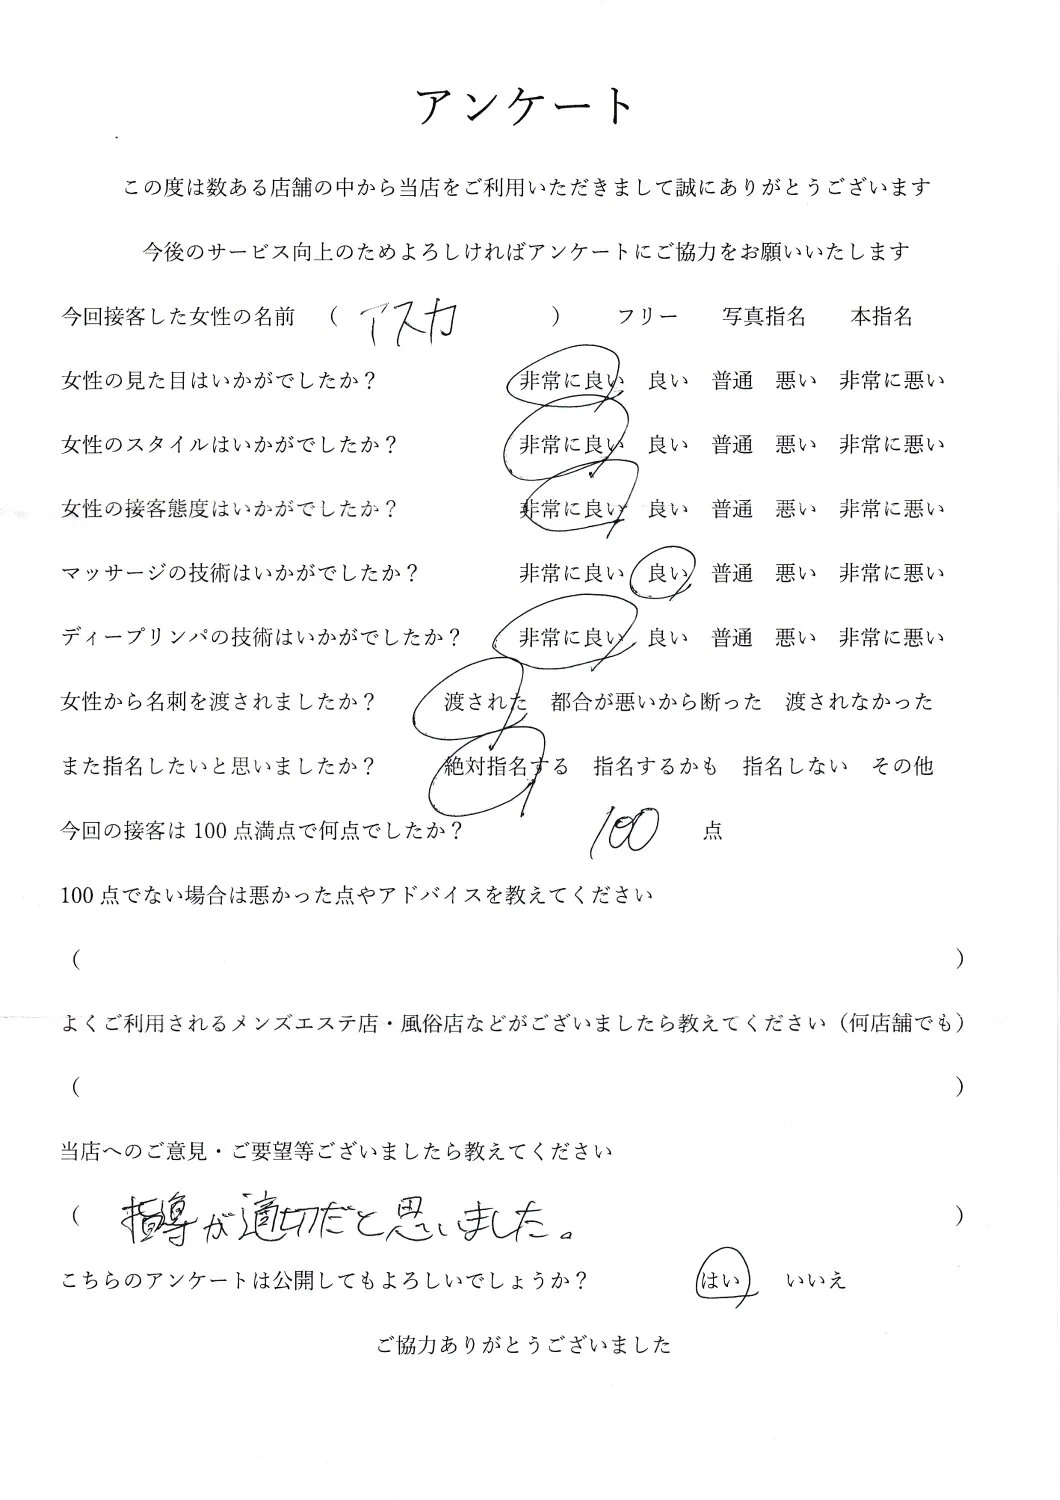 アンケート
この度は数ある店舗の中から当店をご利用いただきまして誠にありがとうございます
今後のサービス向上のためよろしければアンケートにご協力をお願いいたします
今回接客した女性の名前 ( アスカ ) フリー 写真指名 本指名
女性の見た目はいかがでしたか? 非常に良い 良い 普通 悪い 非常に悪い
女性のスタイルはいかがでしたか? 非常に良い 良い 普通 悪い 非常に悪い
女性の接客態度はいかがでしたか? 非常に良い 良い 普通 悪い 非常に悪い
マッサージの技術はいかがでしたか? 非常に良い 良い 普通 悪い 非常に悪い
ディープリンパの技術はいかがでしたか? 非常に良い 良い 普通 悪い 非常に悪い
女性から名刺を渡されましたか? 渡された 都合が悪いから断った 渡されなかった
また指名したいと思いましたか? 絶対指名する 指名するかも 指名しない その他
今回の接客は 100 点満点で何点でしたか? 100 点
100 点でない場合は悪かった点やアドバイスを教えてください
( )
よくご利用されるメンズエステ店・風俗店などがございましたら教えてください(何店舗でも)
( )
当店へのご意見・ご要望等ございましたら教えてください
( 指導が適切だと思いました。 )
こちらのアンケートは公開してもよろしいでしょうか? はい いいえ
ご協力ありがとうございました